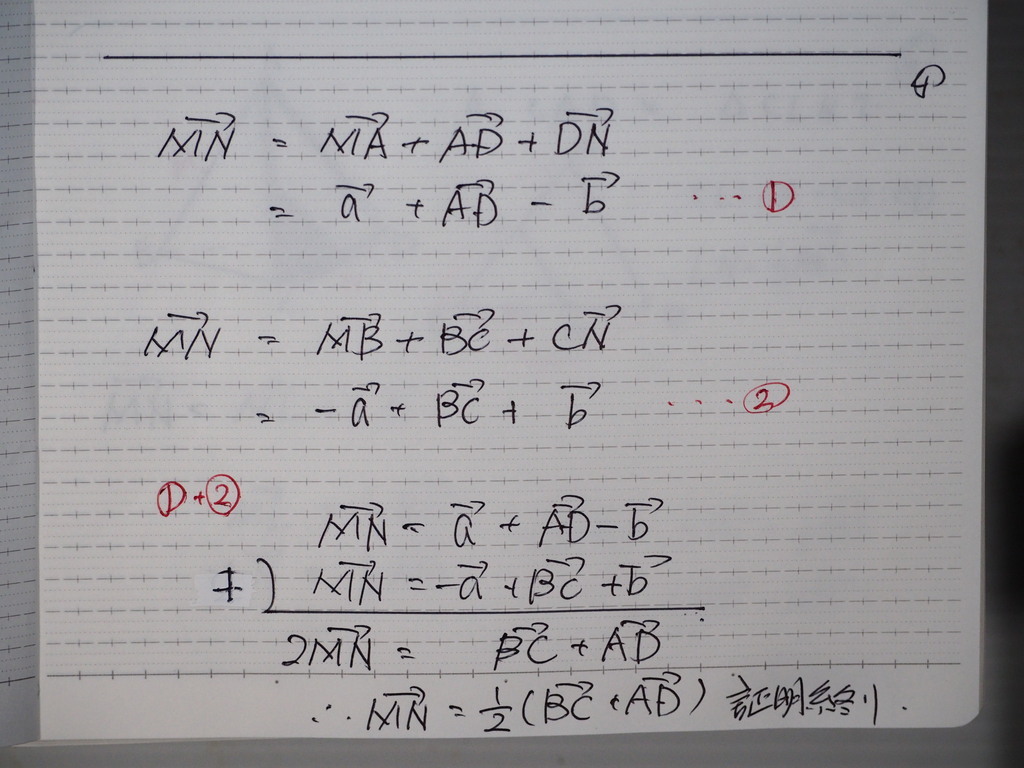 ④
→MN = →MA + →AD + →DN
= →a + →AD - →b ... ①
→MN = →MB + →BC + →CN
= -→a + →BC + →b ... ②
①+②
→MN = →a + →AD - →b
+) →MN = -→a + →BC + →b
2→MN = →BC + →AD
∴ →MN = 1/2 (→BC + →AD) 証明終り.